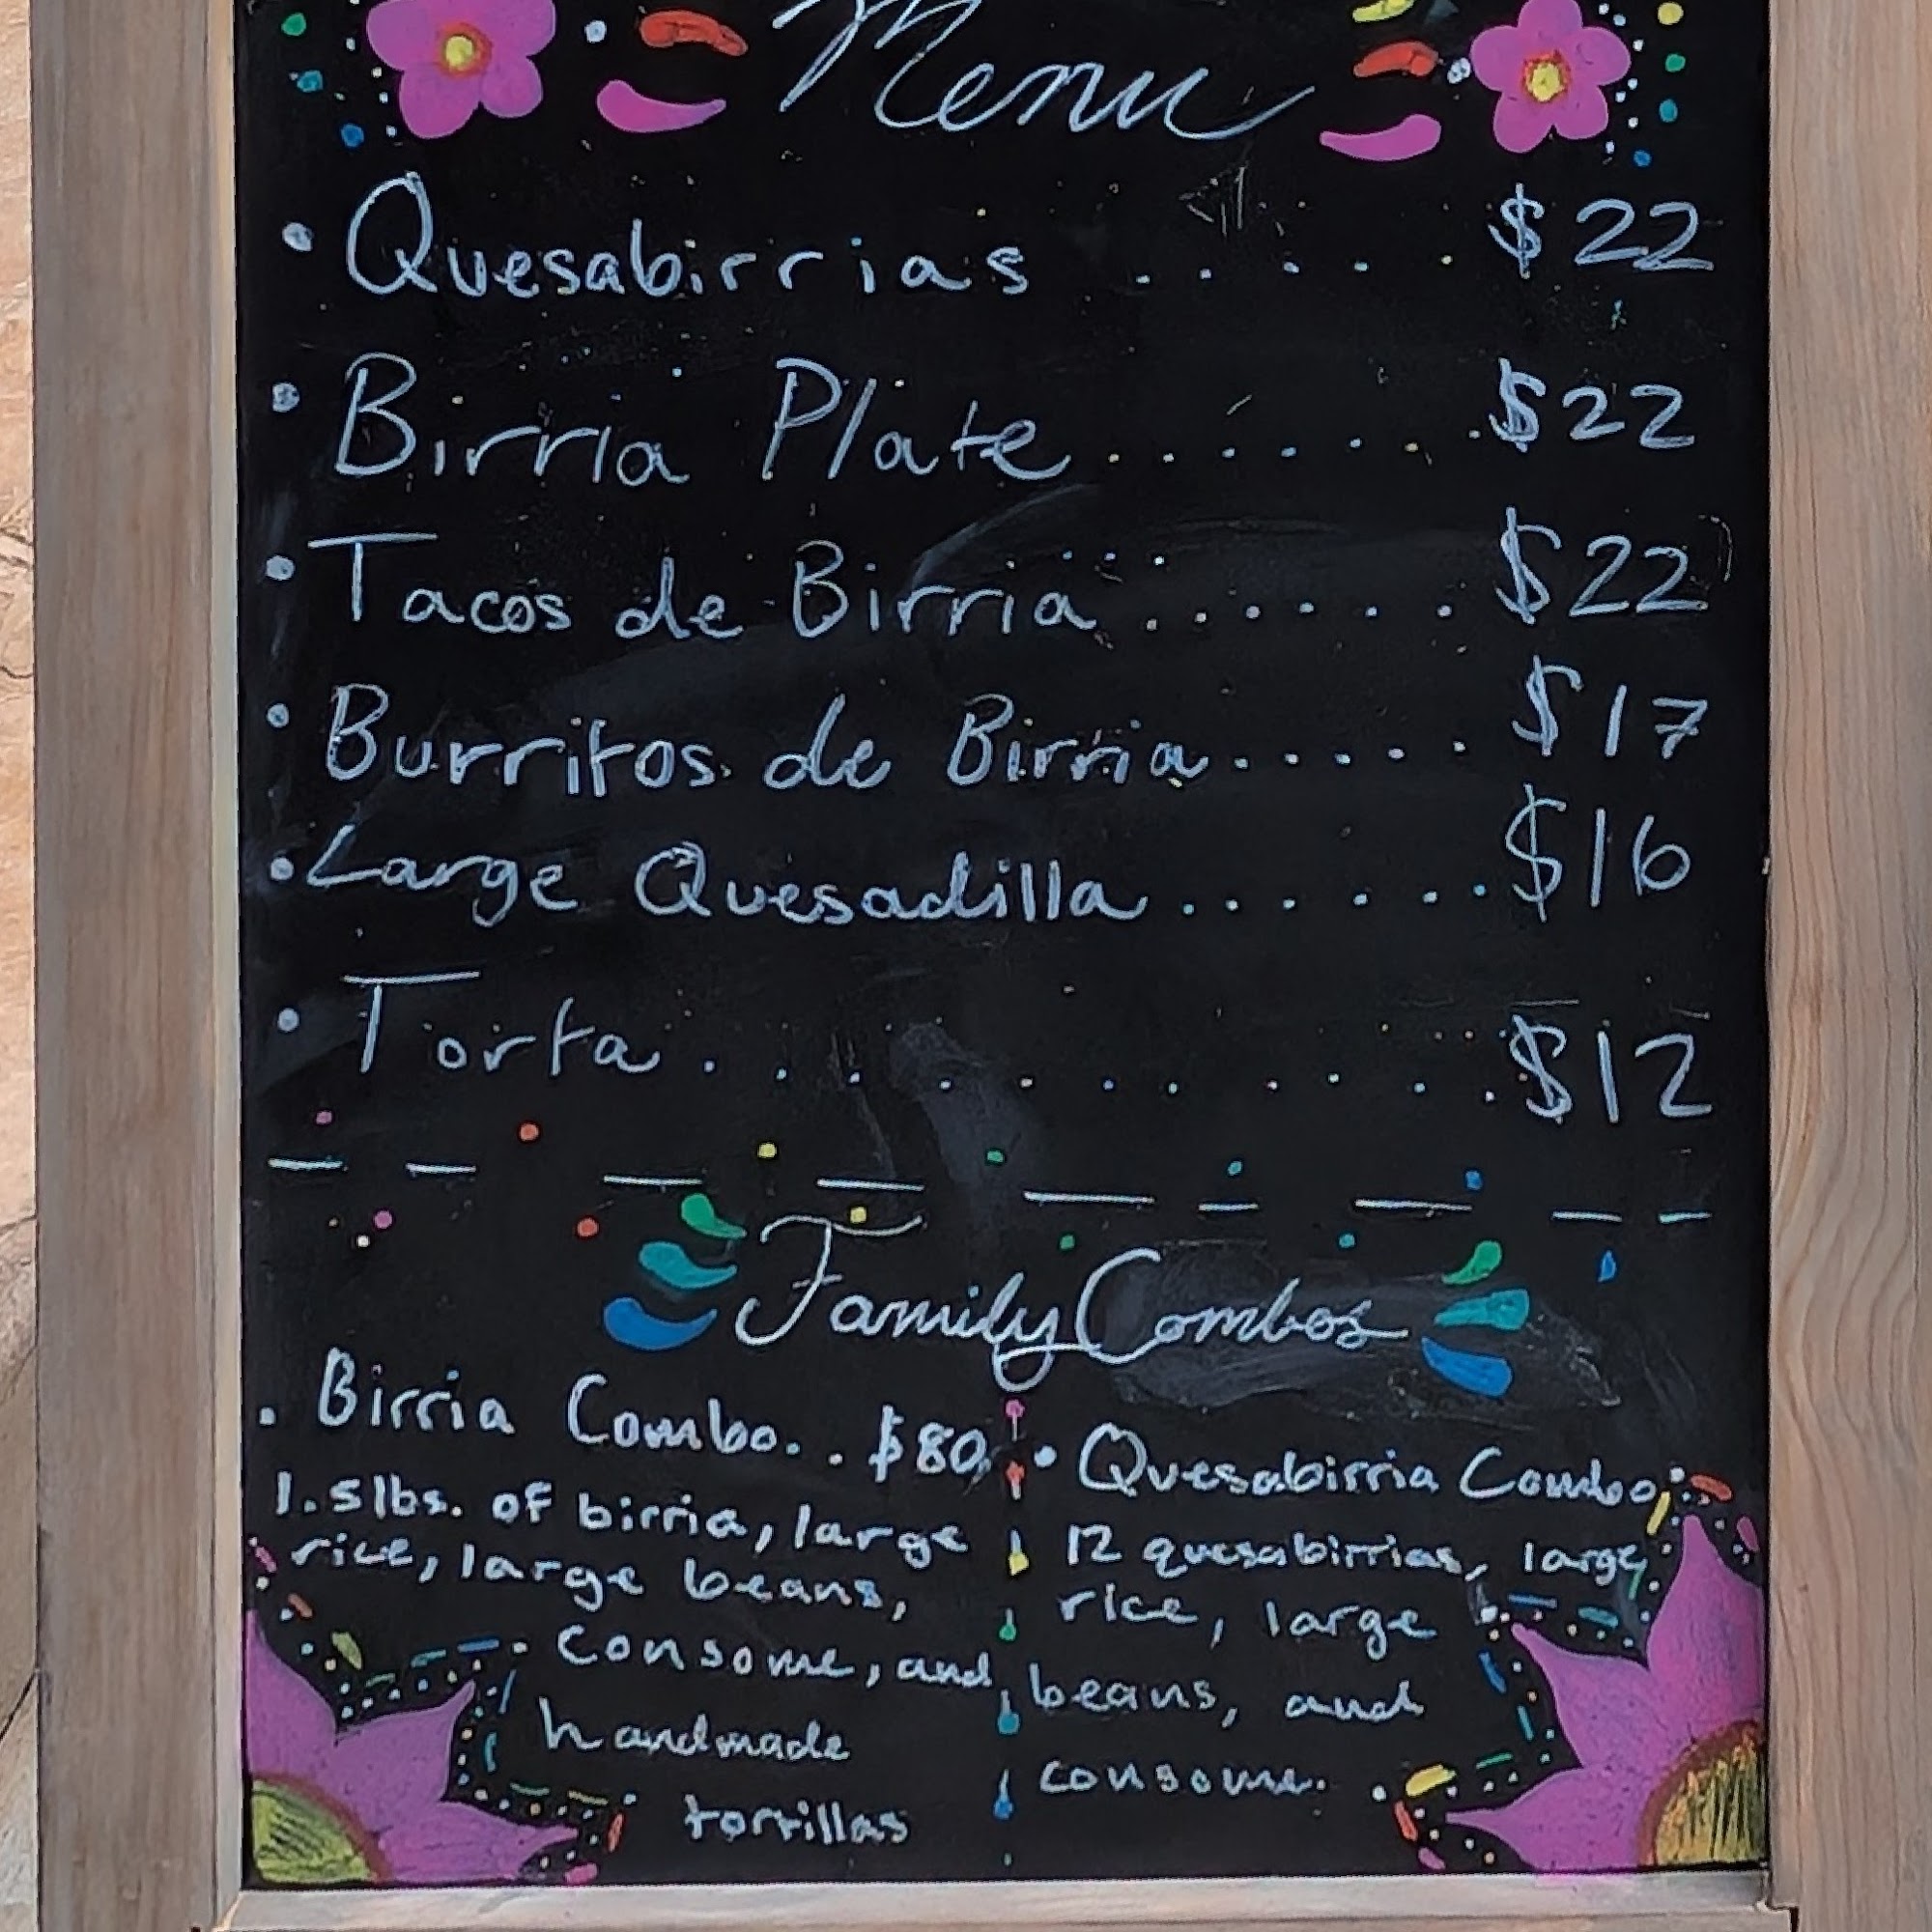 Menu
• Quesabirrias . . . . . $22
• Birria Plate . . . . . . . $22
• Tacos de Birria . . . . . . $22
• Burritos de Birria . . . . . $17
• Large Quesadilla . . . . . . . $16
• Torta . . . . . . . . . . . $12
Family Combos
. Birria Combo. . . $80
1.5 lbs. of birria, large
rice, large beans,
consome, and
handmade
tortillas
• Quesabirria Combo
12 quesabirrias, large
rice, large
beans, and
consome.